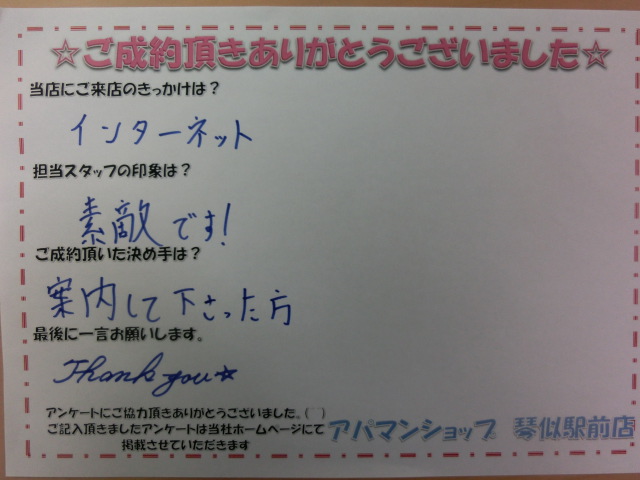 ☆ご成約頂きありがとうございました☆
当店にご来店のきっかけは？
インターネット
担当スタッフの印象は？
素敵です!
ご成約頂いた決め手は？
案内して下さった方
最後に一言お願いします。
Thank you☆
アンケートにご協力頂きありがとうございました。(^^)
ご記入頂きましたアンケートは当社ホームページにて
掲載させていただきます
アパマンショップ 琴似駅前店